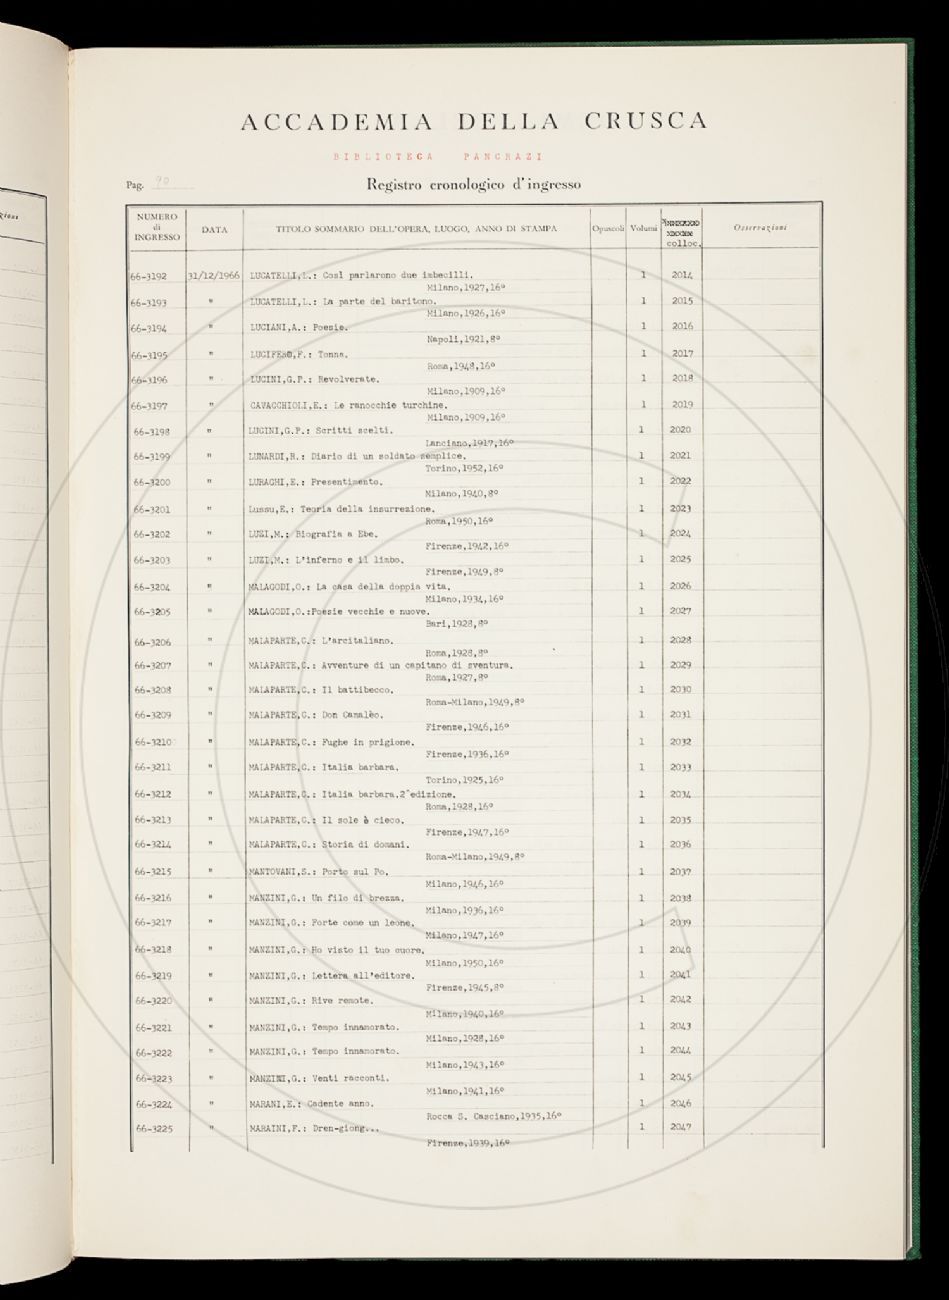 ACCADEMIA DELLA CRUSCA
BIBLIOTECA PANCRAZI
Pag. 90
Registro cronologico d'ingresso
NUMERO di INGRESSO DATA TITOLO SOMMARIO DELL'OPERA, LUOGO, ANNO DI STAMPA Opuscoli Volumi colloc. Osservazioni
66-3192 31/12/1966 LUCATELLI,L.: Così parlarono due imbecilli. 1 2014
Milano,1927,16º
66-3193 " LUCATELLI,L.: La parte del baritono. 1 2015
Milano,1926,16º
66-3194 " LUCIANI,A.: Poesie. 1 2016
Napoli,1921,8º
66-3195 " LUCIFERO,F.: Tonna. 1 2017
Roma,1948,16º
66-3196 " LUCINI,G.P.: Revolverate. 1 2018
Milano,1909,16º
66-3197 " CAVACCHIOLI,E.: Le ranocchie turchine. 1 2019
Milano,1909,16º
66-3198 " LUCINI,G.P.: Scritti scelti. 1 2020
Lanciano,1917,16º
66-3199 " LUNARDI,R.: Diario di un soldato semplice. 1 2021
Torino,1952,16º
66-3200 " LURAGHI,E.: Presentimento. 1 2022
Milano,1940,8º
66-3201 " Lussu,E.: Teoria della insurrezione. 1 2023
Roma,1950,16º
66-3202 " LUZI,M.: Biografia a Ebe. 1 2024
Firenze,1942,16º
66-3203 " LUZI,M.: L'inferno e il limbo. 1 2025
Firenze,1949,8º
66-3204 " MALAGODI,O.: La casa della doppia vita. 1 2026
Milano,1934,16º
66-3205 " MALAGODI,O.:Poesie vecchie e nuove. 1 2027
Bari,1928,8º
66-3206 " MALAPARTE,C.: L'arcitaliano. 1 2028
Roma,1928,8º
66-3207 " MALAPARTE,C.: Avventure di un capitano di sventura. 1 2029
Roma,1927,8º
66-3208 " MALAPARTE,C.: Il battibecco. 1 2030
Roma-Milano,1949,8º
66-3209 " MALAPARTE,C.: Don Camalèo. 1 2031
Firenze,1946,16º
66-3210 " MALAPARTE,C.: Fughe in prigione. 1 2032
Firenze,1936,16º
66-3211 " MALAPARTE,C.: Italia barbara. 1 2033
Torino,1925,16º
66-3212 " MALAPARTE,C.: Italia barbara.2ªedizione. 1 2034
Roma,1928,16º
66-3213 " MALAPARTE,C.: Il sole è cieco. 1 2035
Firenze,1947,16º
66-3214 " MALAPARTE,C.: Storia di domani. 1 2036
Roma-Milano,1949,8º
66-3215 " MANTOVANI,S.: Porto sul Po. 1 2037
Milano,1946,16º
66-3216 " MANZINI,G.: Un filo di brezza. 1 2038
Milano,1936,16º
66-3217 " MANZINI,G.: Forte come un leone. 1 2039
Milano,1947,16º
66-3218 " MANZINI,G.: Ho visto il tuo cuore. 1 2040
Milano,1950,16º
66-3219 " MANZINI,G.: Lettera all'editore. 1 2041
Firenze,1945,8º
66-3220 " MANZINI,G.: Rive remote. 1 2042
Milano,1940,16º
66-3221 " MANZINI,G.: Tempo innamorato. 1 2043
Milano,1928,16º
66-3222 " MANZINI,G.: Tempo innamorato. 1 2044
Milano,1943,16º
66-3223 " MANZINI,G.: Venti racconti. 1 2045
Milano,1941,16º
66-3224 " MARANI,E.: Cadente anno. 1 2046
Rocca S. Casciano,1935,16º
66-3225 " MARAINI,F.: Dren-giong... 1 2047
Firenze,1939,16º